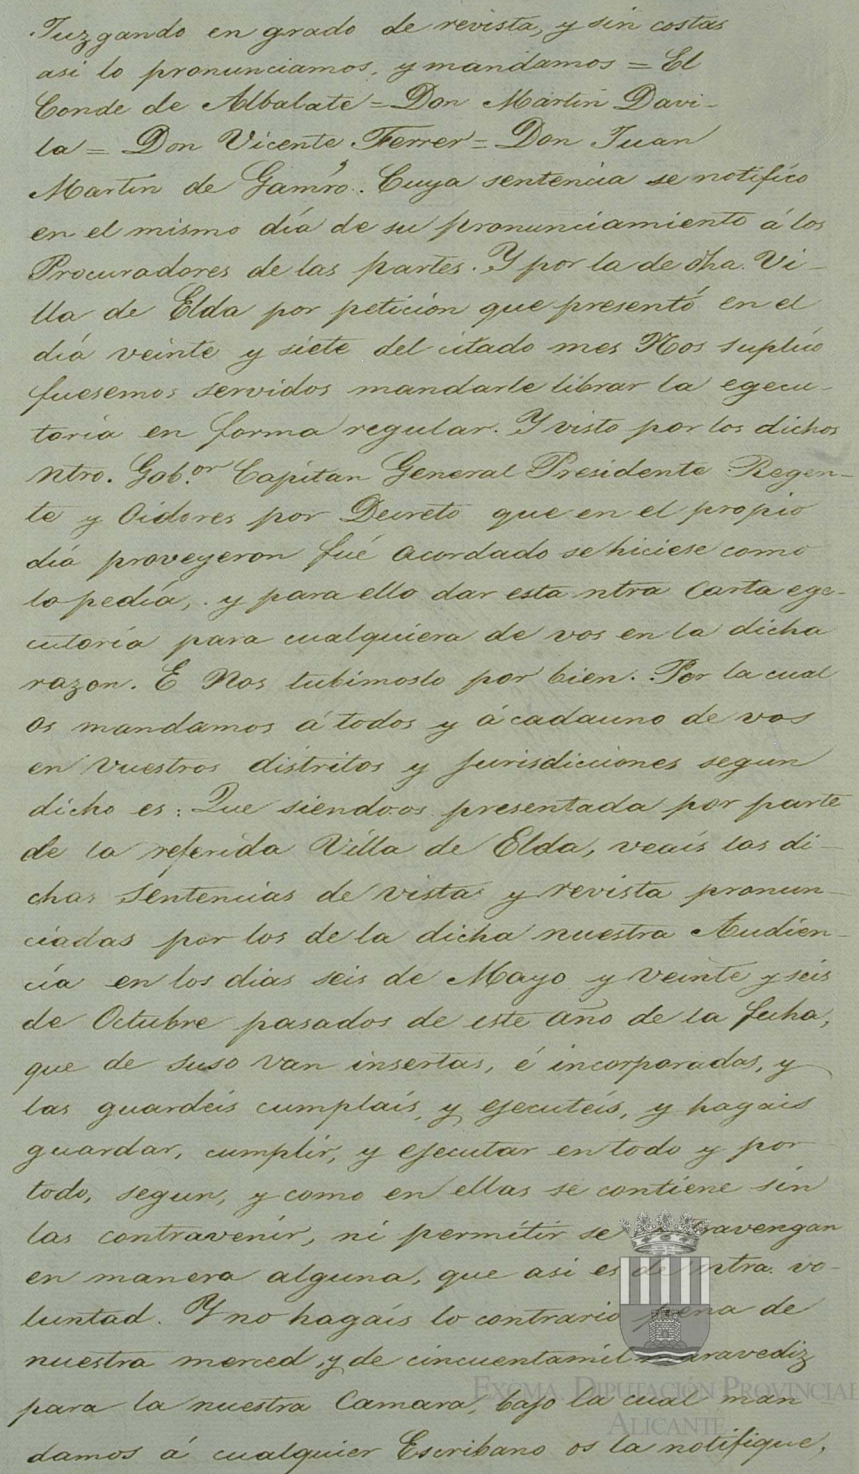 Juzgando en grado de revista, y sin costas
asi lo pronunciamos, y mandamos = El
Conde de Albalate = Don Martin Davi-
la = Don Vicente Ferrer = Don Juan
Martin de Gamio. Cuya sentencia se notifico
en el mismo día de su pronunciamiento á los
Procuradores de las partes. Y por la de dha. Vi-
lla de Elda por petición que presentó en el
día veinte y siete del citado mes Nos suplicó
fuesemos servidos mandarle librar la egecu-
toria en forma regular. Y visto por los dichos
ntro. Gob.or Capitan General Presidente Regen-
te y Oidores por Decreto que en el propio
día proveyeron fué acordado se hiciese como
lo pedía, y para ello dar esta ntra Carta ege-
cutoria para cualquiera de vos en la dicha
razon. E Nos tubimoslo por bien. Por la cual
os mandamos á todos y á cadauno de vos
en vuestros distritos y jurisdicciones segun
dicho es: Que siendoos presentada por parte
de la referida Villa de Elda, veais las di-
chas Sentencias de vista y revista pronun-
ciadas por los de la dicha nuestra Audien-
cia en los dias seis de Mayo y veinte y seis
de Octubre pasados de este año de la fecha,
que de suso van insertas, é incorporadas, y
las guardéis cumplaís, y ejecutéis, y hagais
guardar, cumplir, y ejecutar en todo y por
todo, segun, y como en ellas se contiene sin
las contravenir, ni permitir se contravengan
en manera alguna, que asi es de ntra. vo-
luntad. Y no hagaís lo contrario pena de
nuestra merced, y de cincuentamil maravediz
para la nuestra Camara, bajo la cual man
damos á cualquier Escribano os la notifique,
EXCMA. DIPUTACIÓN PROVINCIAL
ALICANTE